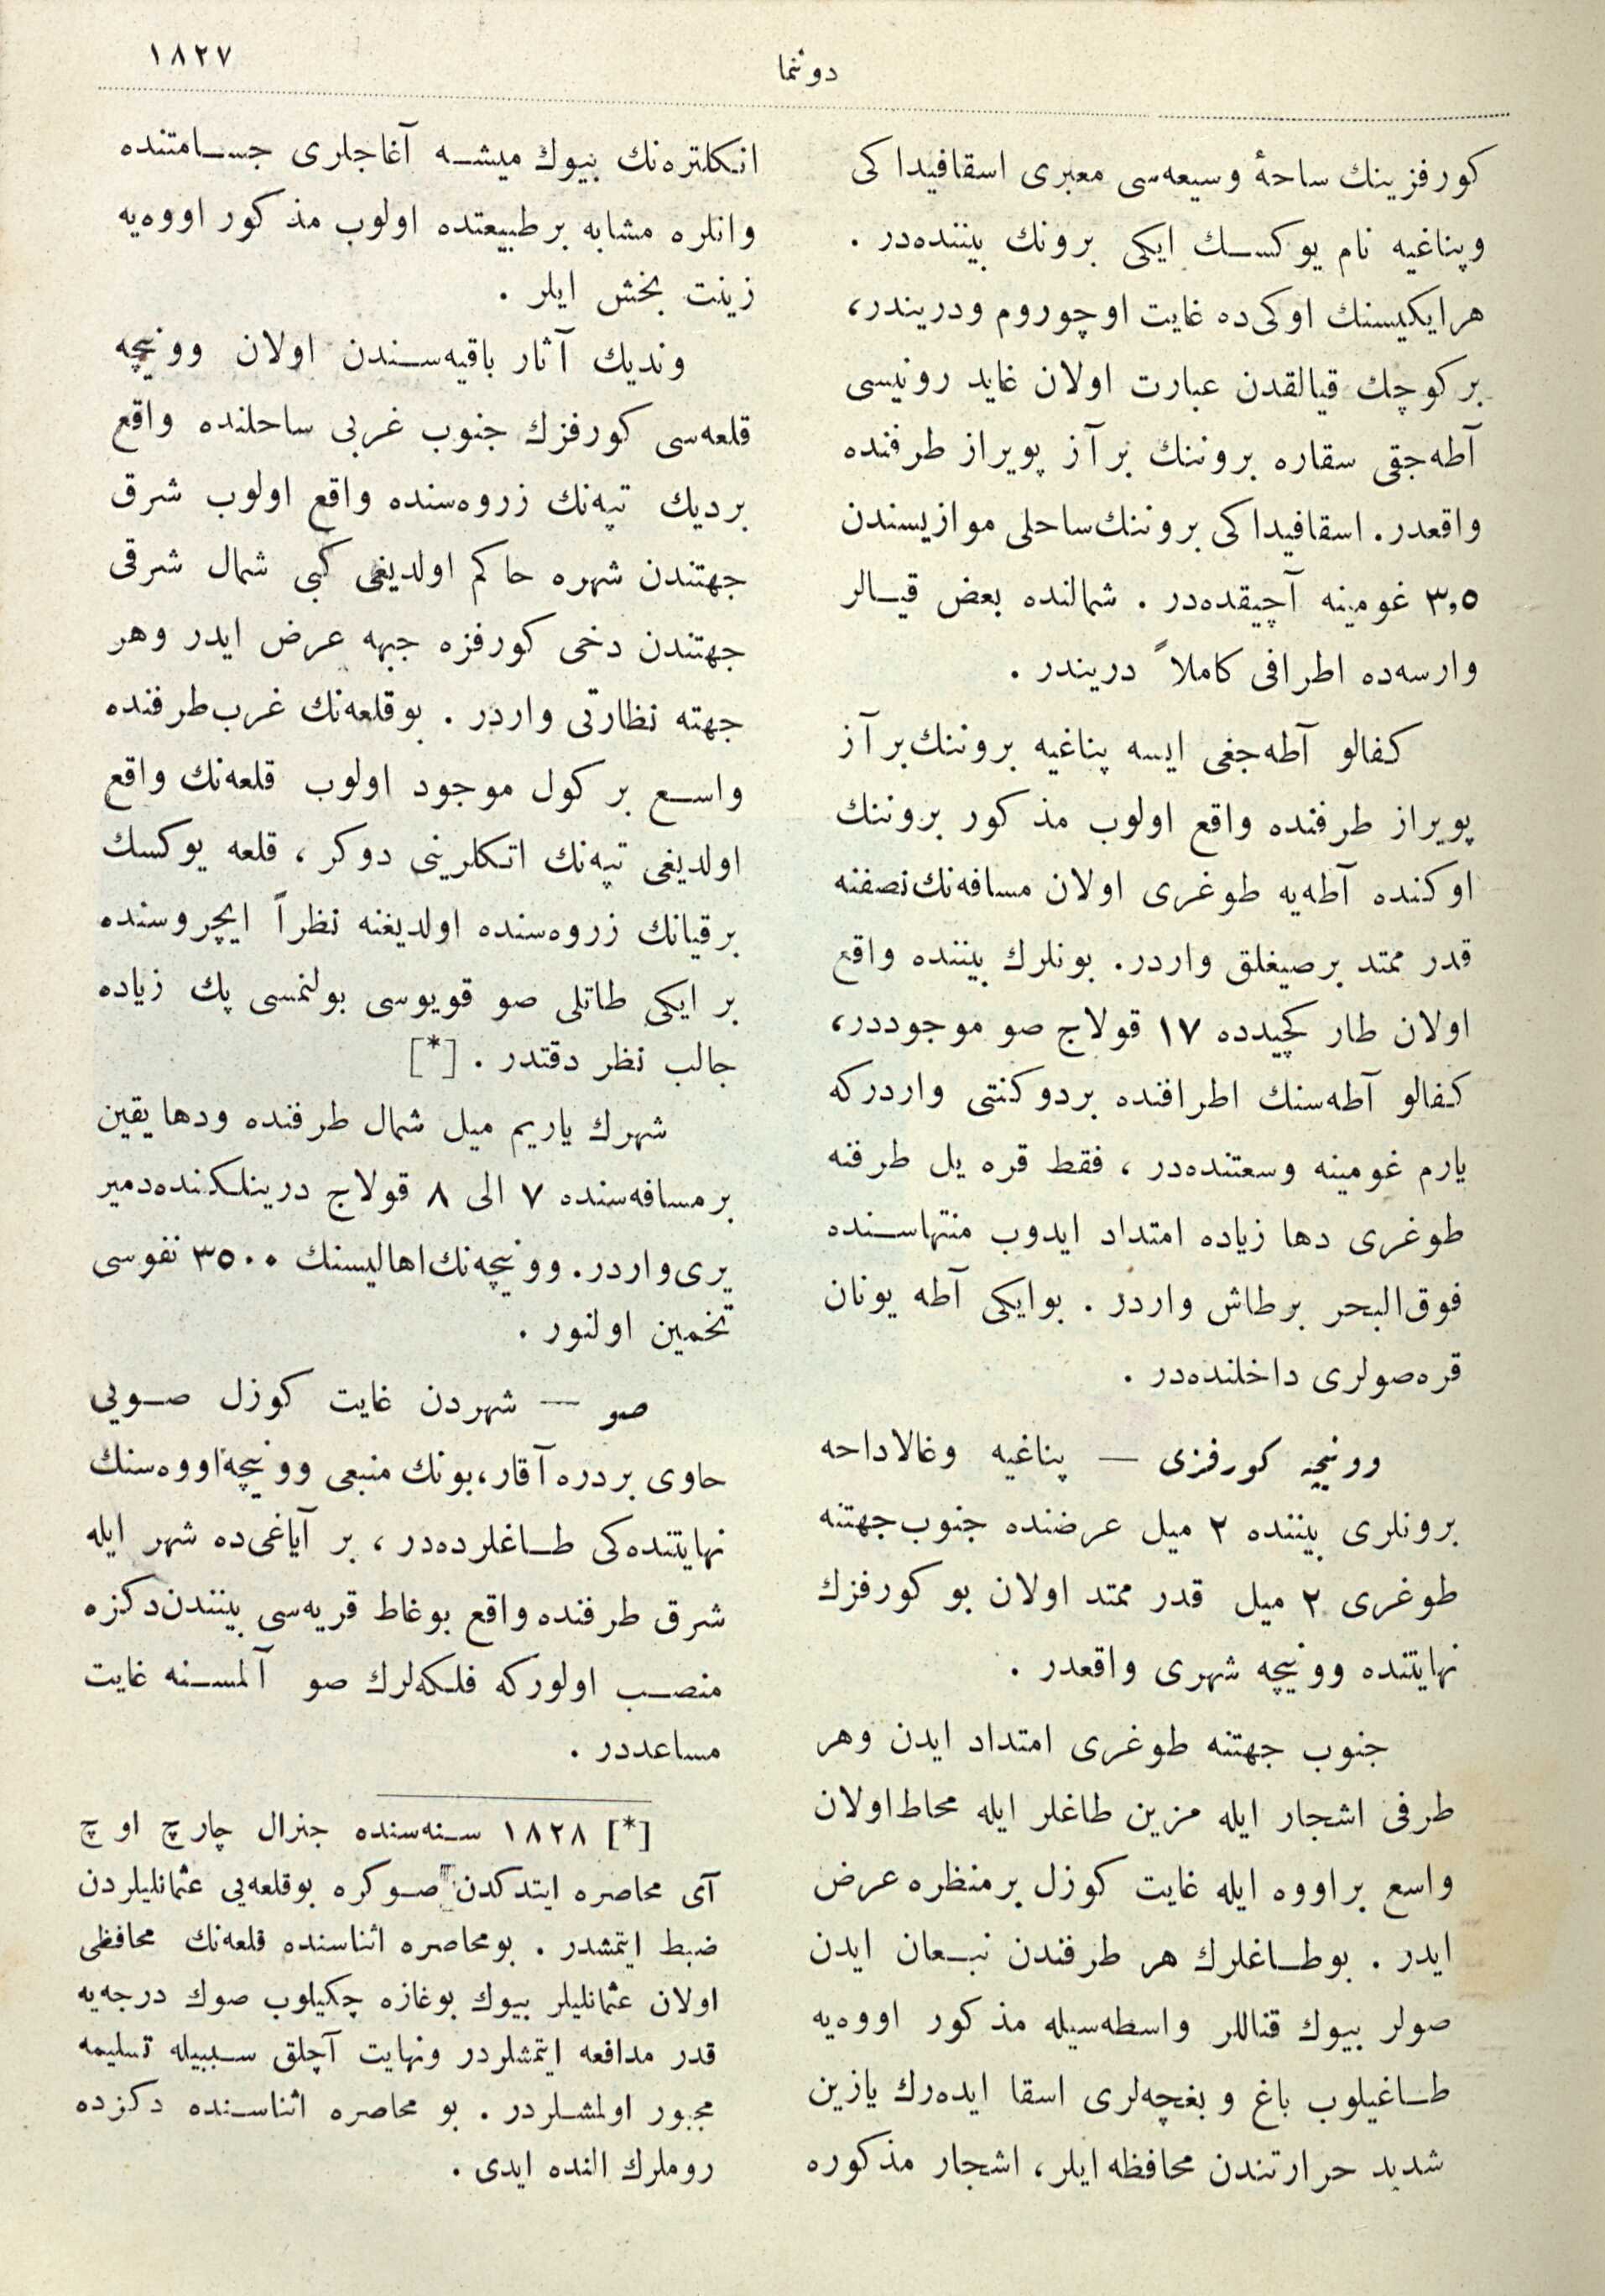 ١٨٢٧
دوننما
كورفزينك ساحۀ وسيعه‌سى معبرى اسقافيدا كى
وپناغيه نام يوكسك ايكى برونك بيننده‌در .
هرايكيسنك اوكى‌ده غايت اوچوروم ودريندر،
بر كوچك قيالقدن عبارت اولان غايد رونيسى
آطه‌جقى سقاره بروننك بر آز پويراز طرفنده
واقعدر. اسقافيدا كى بروننك ساحلى موازيسندن
٣,٥ غومينه آچيقده‌در . شمالنده بعض قيالر
وارسه‌ده اطرافى كاملاً دريندر .
كفالو آطه‌جغى ايسه پناغيه بروننك بر آز
پويراز طرفنده واقع اولوب مذكور بروننك
اوكنده آطه‌يه طوغرى اولان مسافه‌نك نصفنه
قدر ممتد برصيغلق واردر. بونلرك بيننده واقع
اولان طار كچيدده ١٧ قولاج صو موجوددر،
كفالو آطه‌سنك اطرافنده بردوكنتى واردركه
يارم غومينه وسعتنده‌در ، فقط قره يل طرفنه
طوغرى دها زياده امتداد ايدوب منتهاسنده
فوق‌البحر برطاش واردر . بوايكى آطه يونان
قره‌صولرى داخلنده‌در .
وونيچه كورفزى — پناغيه وغالاداحه
برونلرى بيننده ٢ ميل عرضنده جنوب جهتنه
طوغرى ٢ ميل قدر ممتد اولان بو كورفزك
نهايتنده وونيچه شهرى واقعدر .
جنوب جهتنه طوغرى امتداد ايدن وهر
طرفى اشجار ايله مزين طاغلر ايله محاط اولان
واسع براووه ايله غايت كوزل برمنظره عرض
ايدر . بوطاغلرك هر طرفندن نبعان ايدن
صولر بيوك قناللر واسطه‌سيله مذكور اووه‌يه
طاغيلوب باغ و بغچه‌لرى اسقا ايده‌رك يازين
شديد حرارتندن محافظه ايلر، اشجار مذكوره
انكلتره‌نك بيوك ميشه آغاجلرى جسامتنده
وانلره مشابه برطبيعتده اولوب مذكور اووه‌يه
زينت بخش ايلر .
ونديك آثار باقيه‌سندن اولان وونيچه
قلعه‌سى كورفزك جنوب غربى ساحلنده واقع
برديك تپه‌نك زروه‌سنده واقع اولوب شرق
جهتندن شهره حاكم اولديغى كبى شمال شرقى
جهتندن دخى كورفزه جبهه عرض ايدر وهر
جهته نظارتى واردر . بوقلعه‌نك غرب‌طرفنده
واسع بر كول موجود اولوب قلعه‌نك واقع
اولديغى تپه‌نك اتكلرينى دوكر ، قلعه يوكسك
برقيانك زروه‌سنده اولديغنه نظراً ايچروسنده
بر ايكى طاتلى صو قويوسى بولنمسى پك زياده
جالب نظر دقتدر . [*]
شهرك ياريم ميل شمال طرفنده ودها يقين
برمسافه‌سنده ٧ الى ٨ قولاج درينلكنده‌دمير
يرى‌واردر. وونيچه‌نك‌اهاليسنك ٣٥٠٠ نفوسى
تخمين اولنور .
صو — شهردن غايت كوزل صويى
حاوى بردره آقار،بونك منبعى وونيچه اووه‌سنك
نهايتنده‌كى طاغلرده‌در ، بر آياغى‌ده شهر ايله
شرق طرفنده واقع بوغاط قريه‌سى بينندن‌دكزه
منصب اولوركه فلكه‌لرك صو آلمسنه غايت
مساعددر .
[*] ١٨٢٨ سنه‌سنده جنرال چارچ اوچ
آى محاصره ايتدكدن صوكره بوقلعه‌يى عثمانليلردن
ضبط ايتمشدر . بومحاصره اثناسنده قلعه‌نك محافظى
اولان عثمانليلر بيوك بوغازه چكيلوب صوك درجه‌يه
قدر مدافعه ايتمشلردر ونهايت آچلق سببيله تسليمه
مجبور اولمشلردر . بو محاصره اثناسنده دكزده
روملرك النده ايدى .